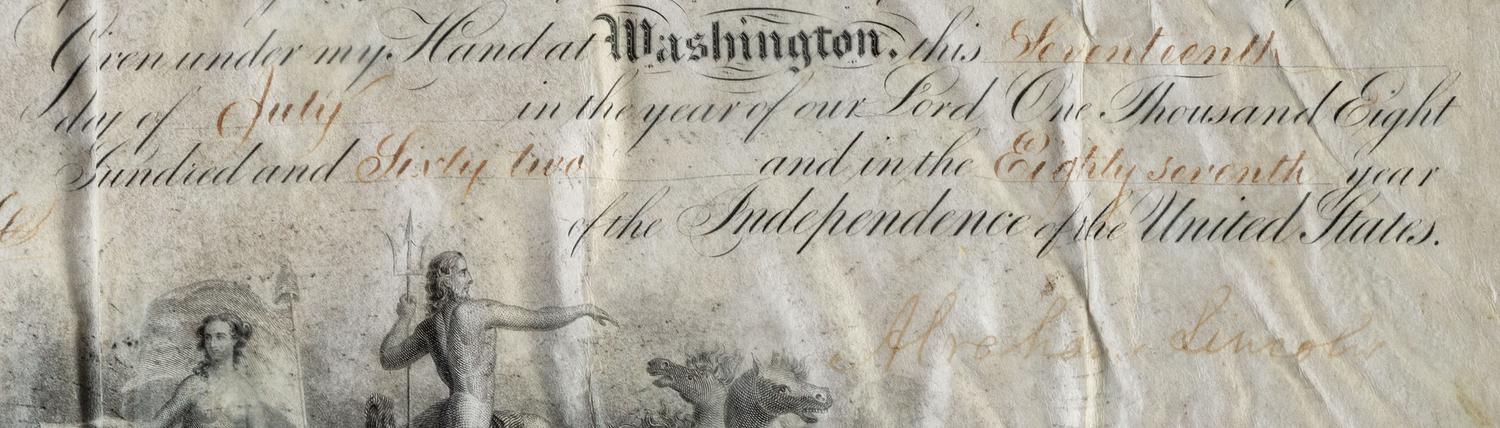 Given under my Hand at Washington. this Seventeenth
day of July in the year of our Lord One Thousand Eight
Hundred and Sixty two and in the Eighty seventh year
of the Independence of the United States.
Abraham Lincoln